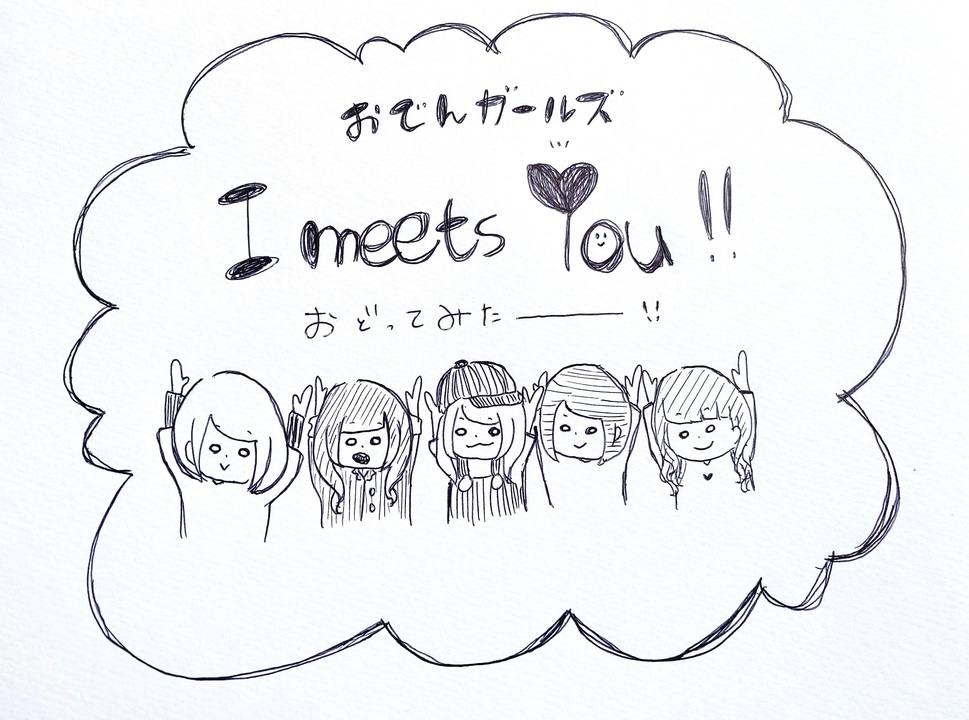 おでんガールズ
I meets You!!
おどってみたー!!